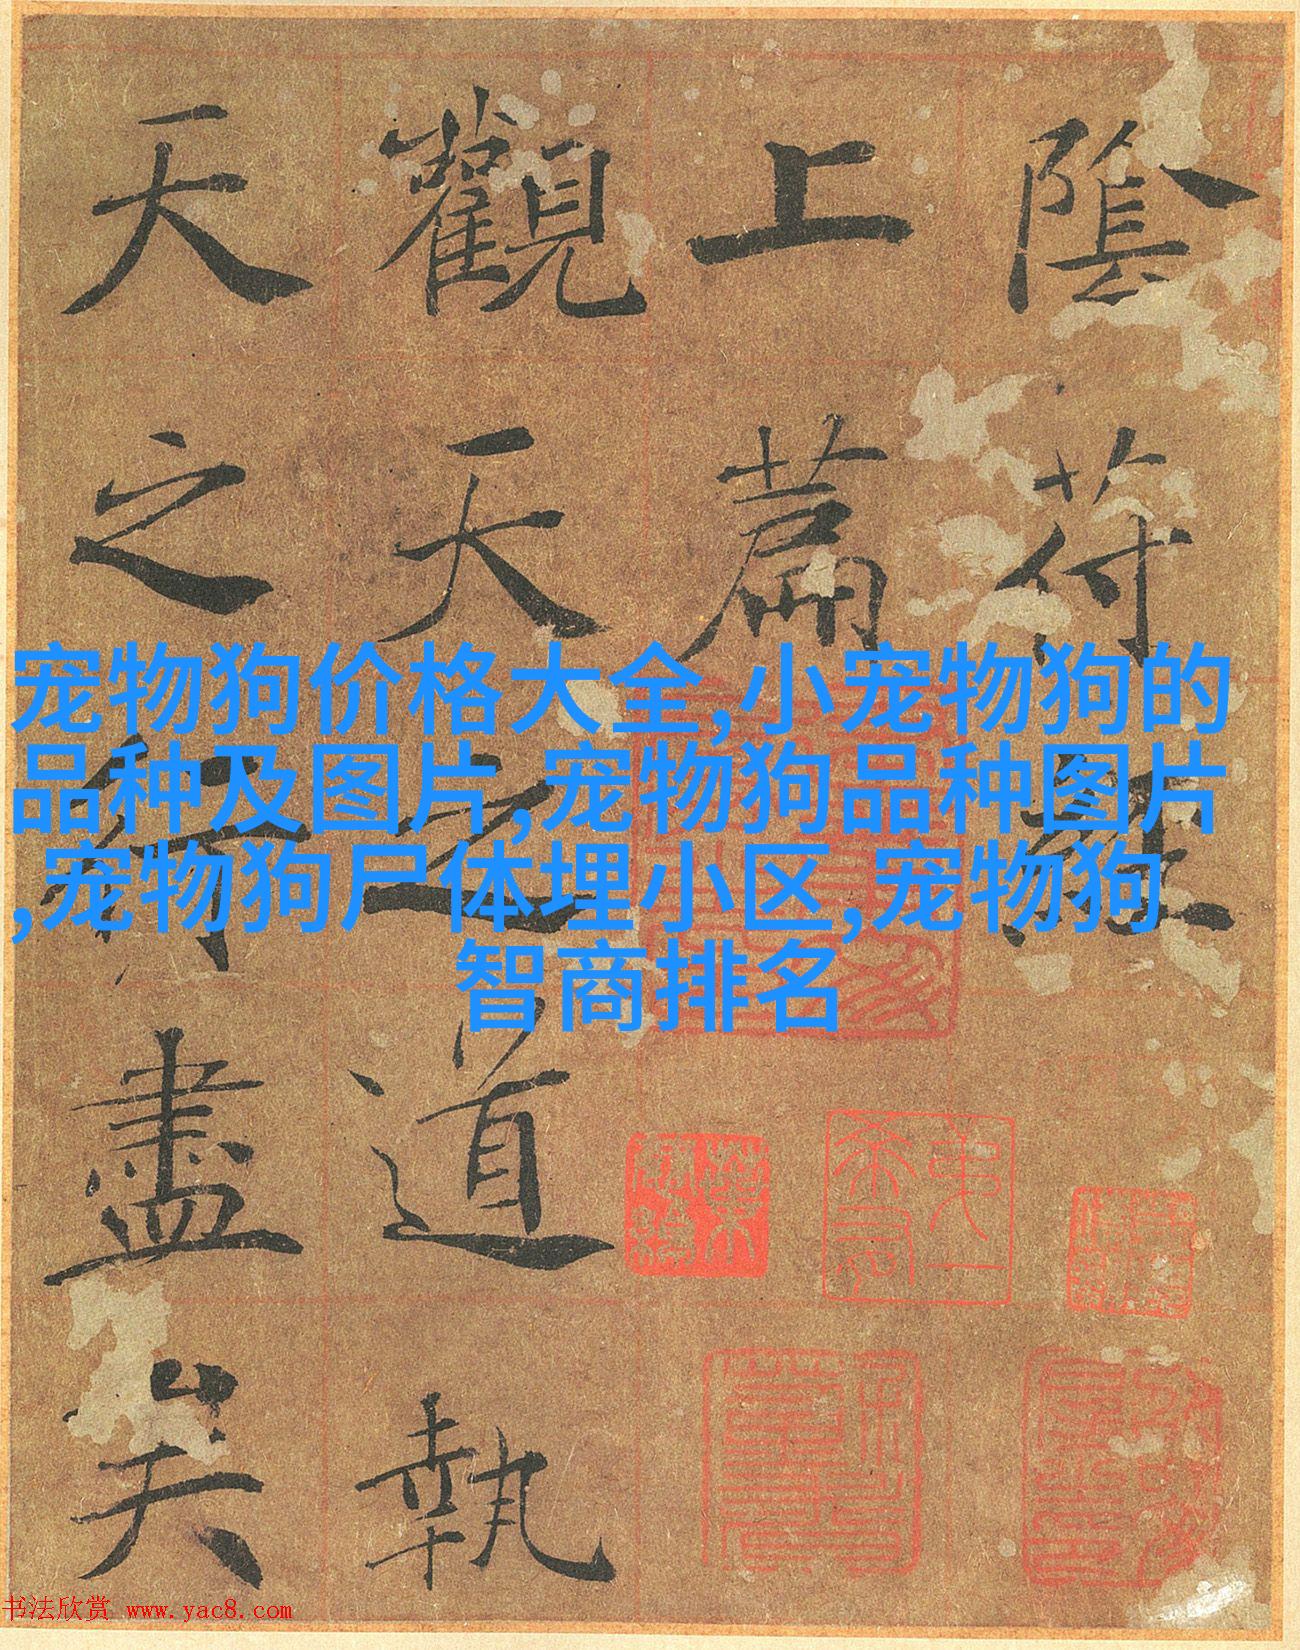 陰符經
上篇
觀天之道執
天之行盡矣
宠物狗价格大全,小宠物狗的
品种及图片,宠物狗品种图片
,宠物狗尸体埋小区,宠物狗
智商排名
书法欣赏 www.yac8.com